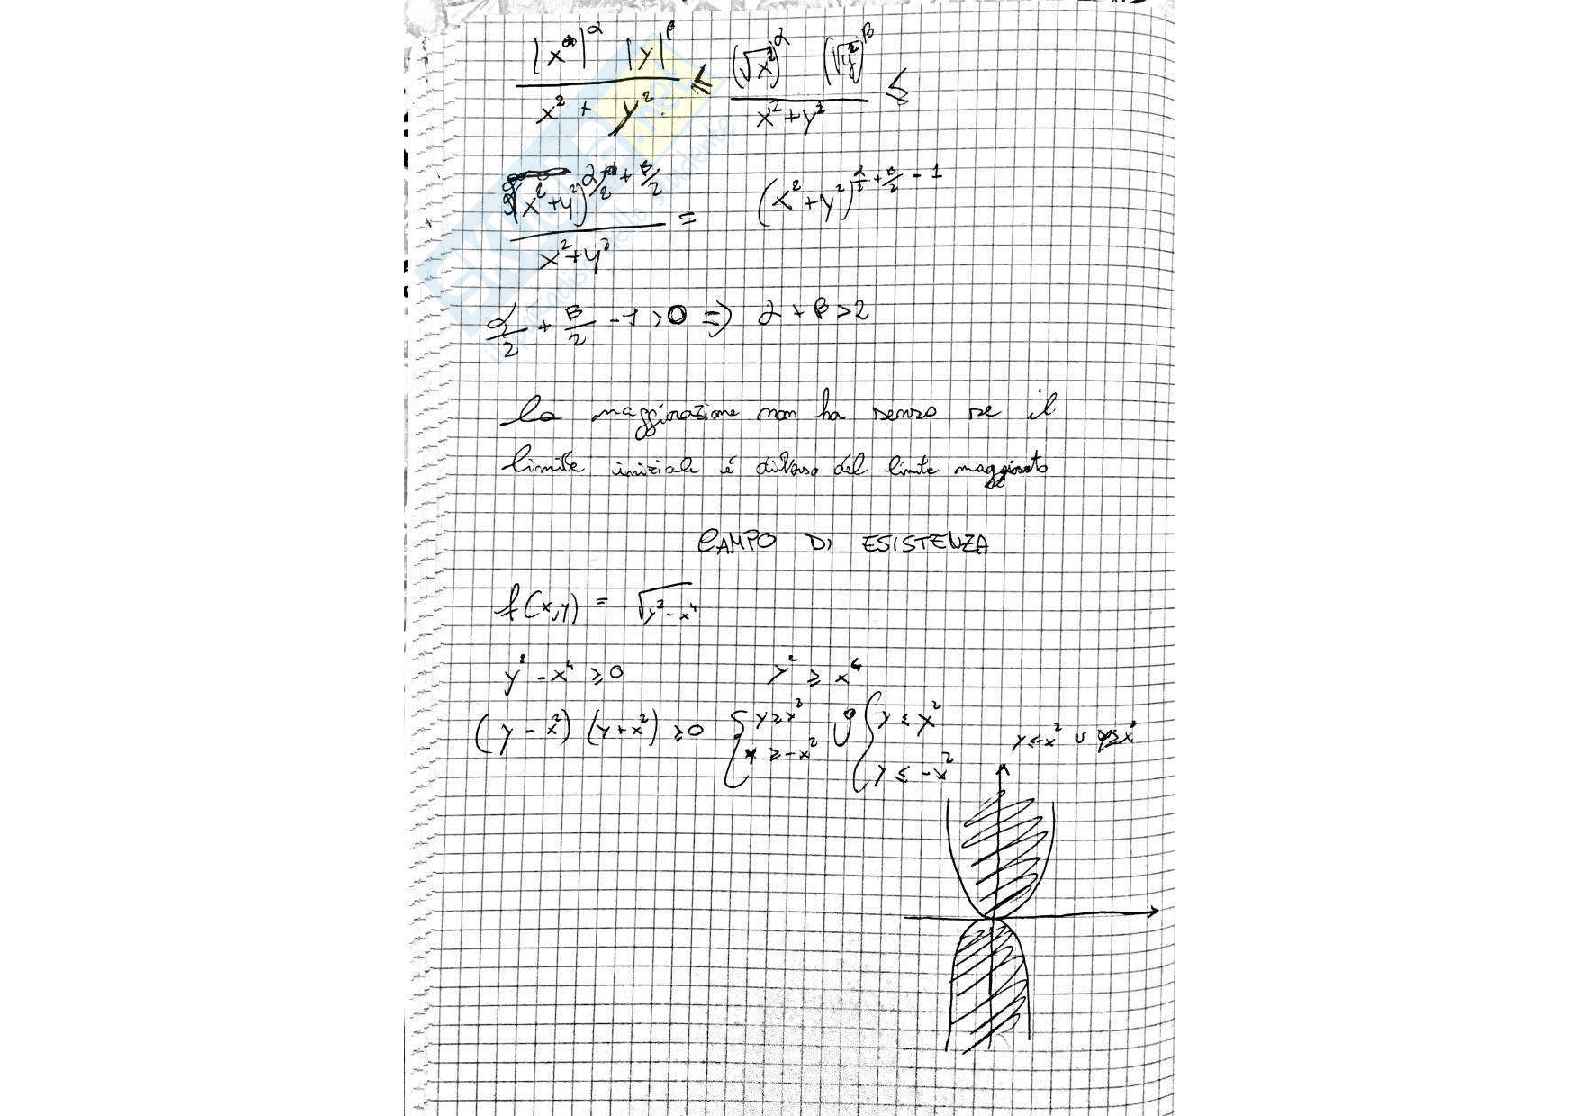 |x|^α |y|^β / x² + y² ≤ (√x²)^α (√y²)^β / x²+y² ≤
(x²+y²)^(α/2 + β/2) / x²+y² = (x²+y²)^(α/2 + β/2 - 1)
α/2 + β/2 - 1 > 0 ⇒ α + β > 2
la maggiorazione non ha senso se il
limite iniziale è diverso del limite maggiorato
CAMPO DI ESISTENZA
f(x,y) = √y²-x⁴
y² - x⁴ ≥ 0 y² ≥ x⁴
(y - x²) (y+x²) ≥ 0 { y ≥ x² ≥ -x² ∪ { y ≤ x² y ≤ -x² y ≤ -x² ∪ y ≥ x²